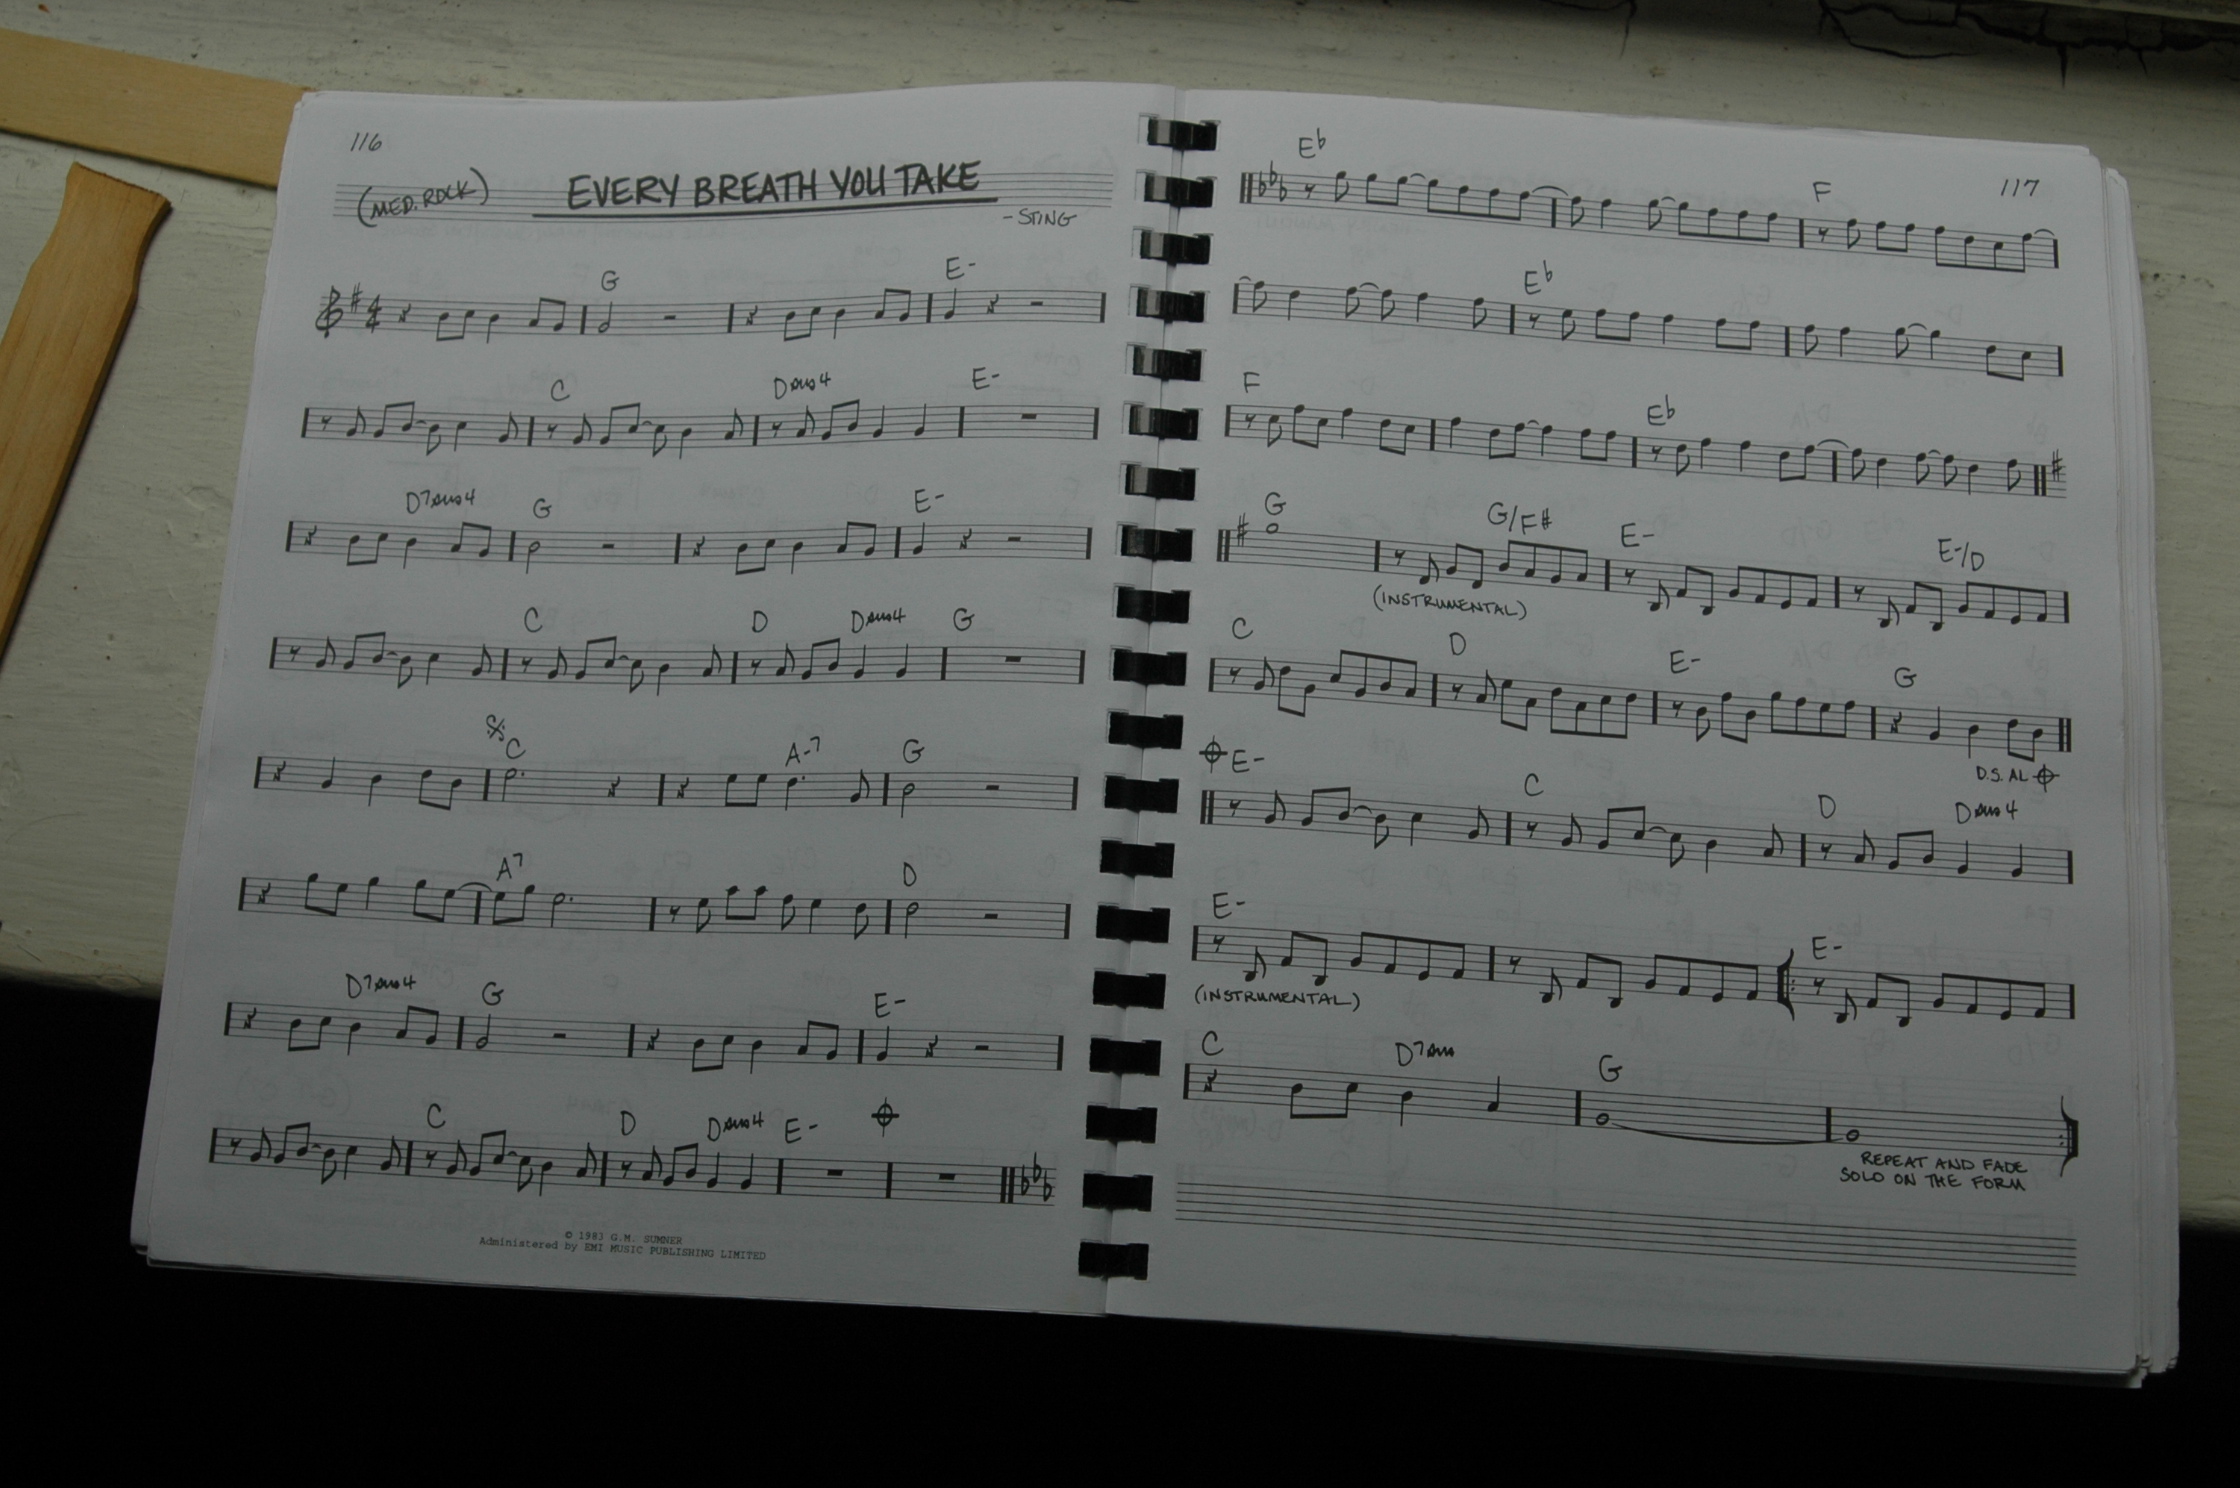 116
(MED. ROCK) EVERY BREATH YOU TAKE
- STING
G E-
C Dsus4 E-
D7sus4 G E-
C D Dsus4 G
C A-7 G
A7 D
D7sus4 G E-
C D Dsus4 E-
© 1983 G.M. SUMNER
Administered by EMI MUSIC PUBLISHING LIMITED
117
Eb F
Eb
F Eb
G G/F# E- E-/D
(INSTRUMENTAL)
C D E- G
D.S. AL
E- C D Dsus4
E- E-
(INSTRUMENTAL)
C D7sus G
REPEAT AND FADE
SOLO ON THE FORM